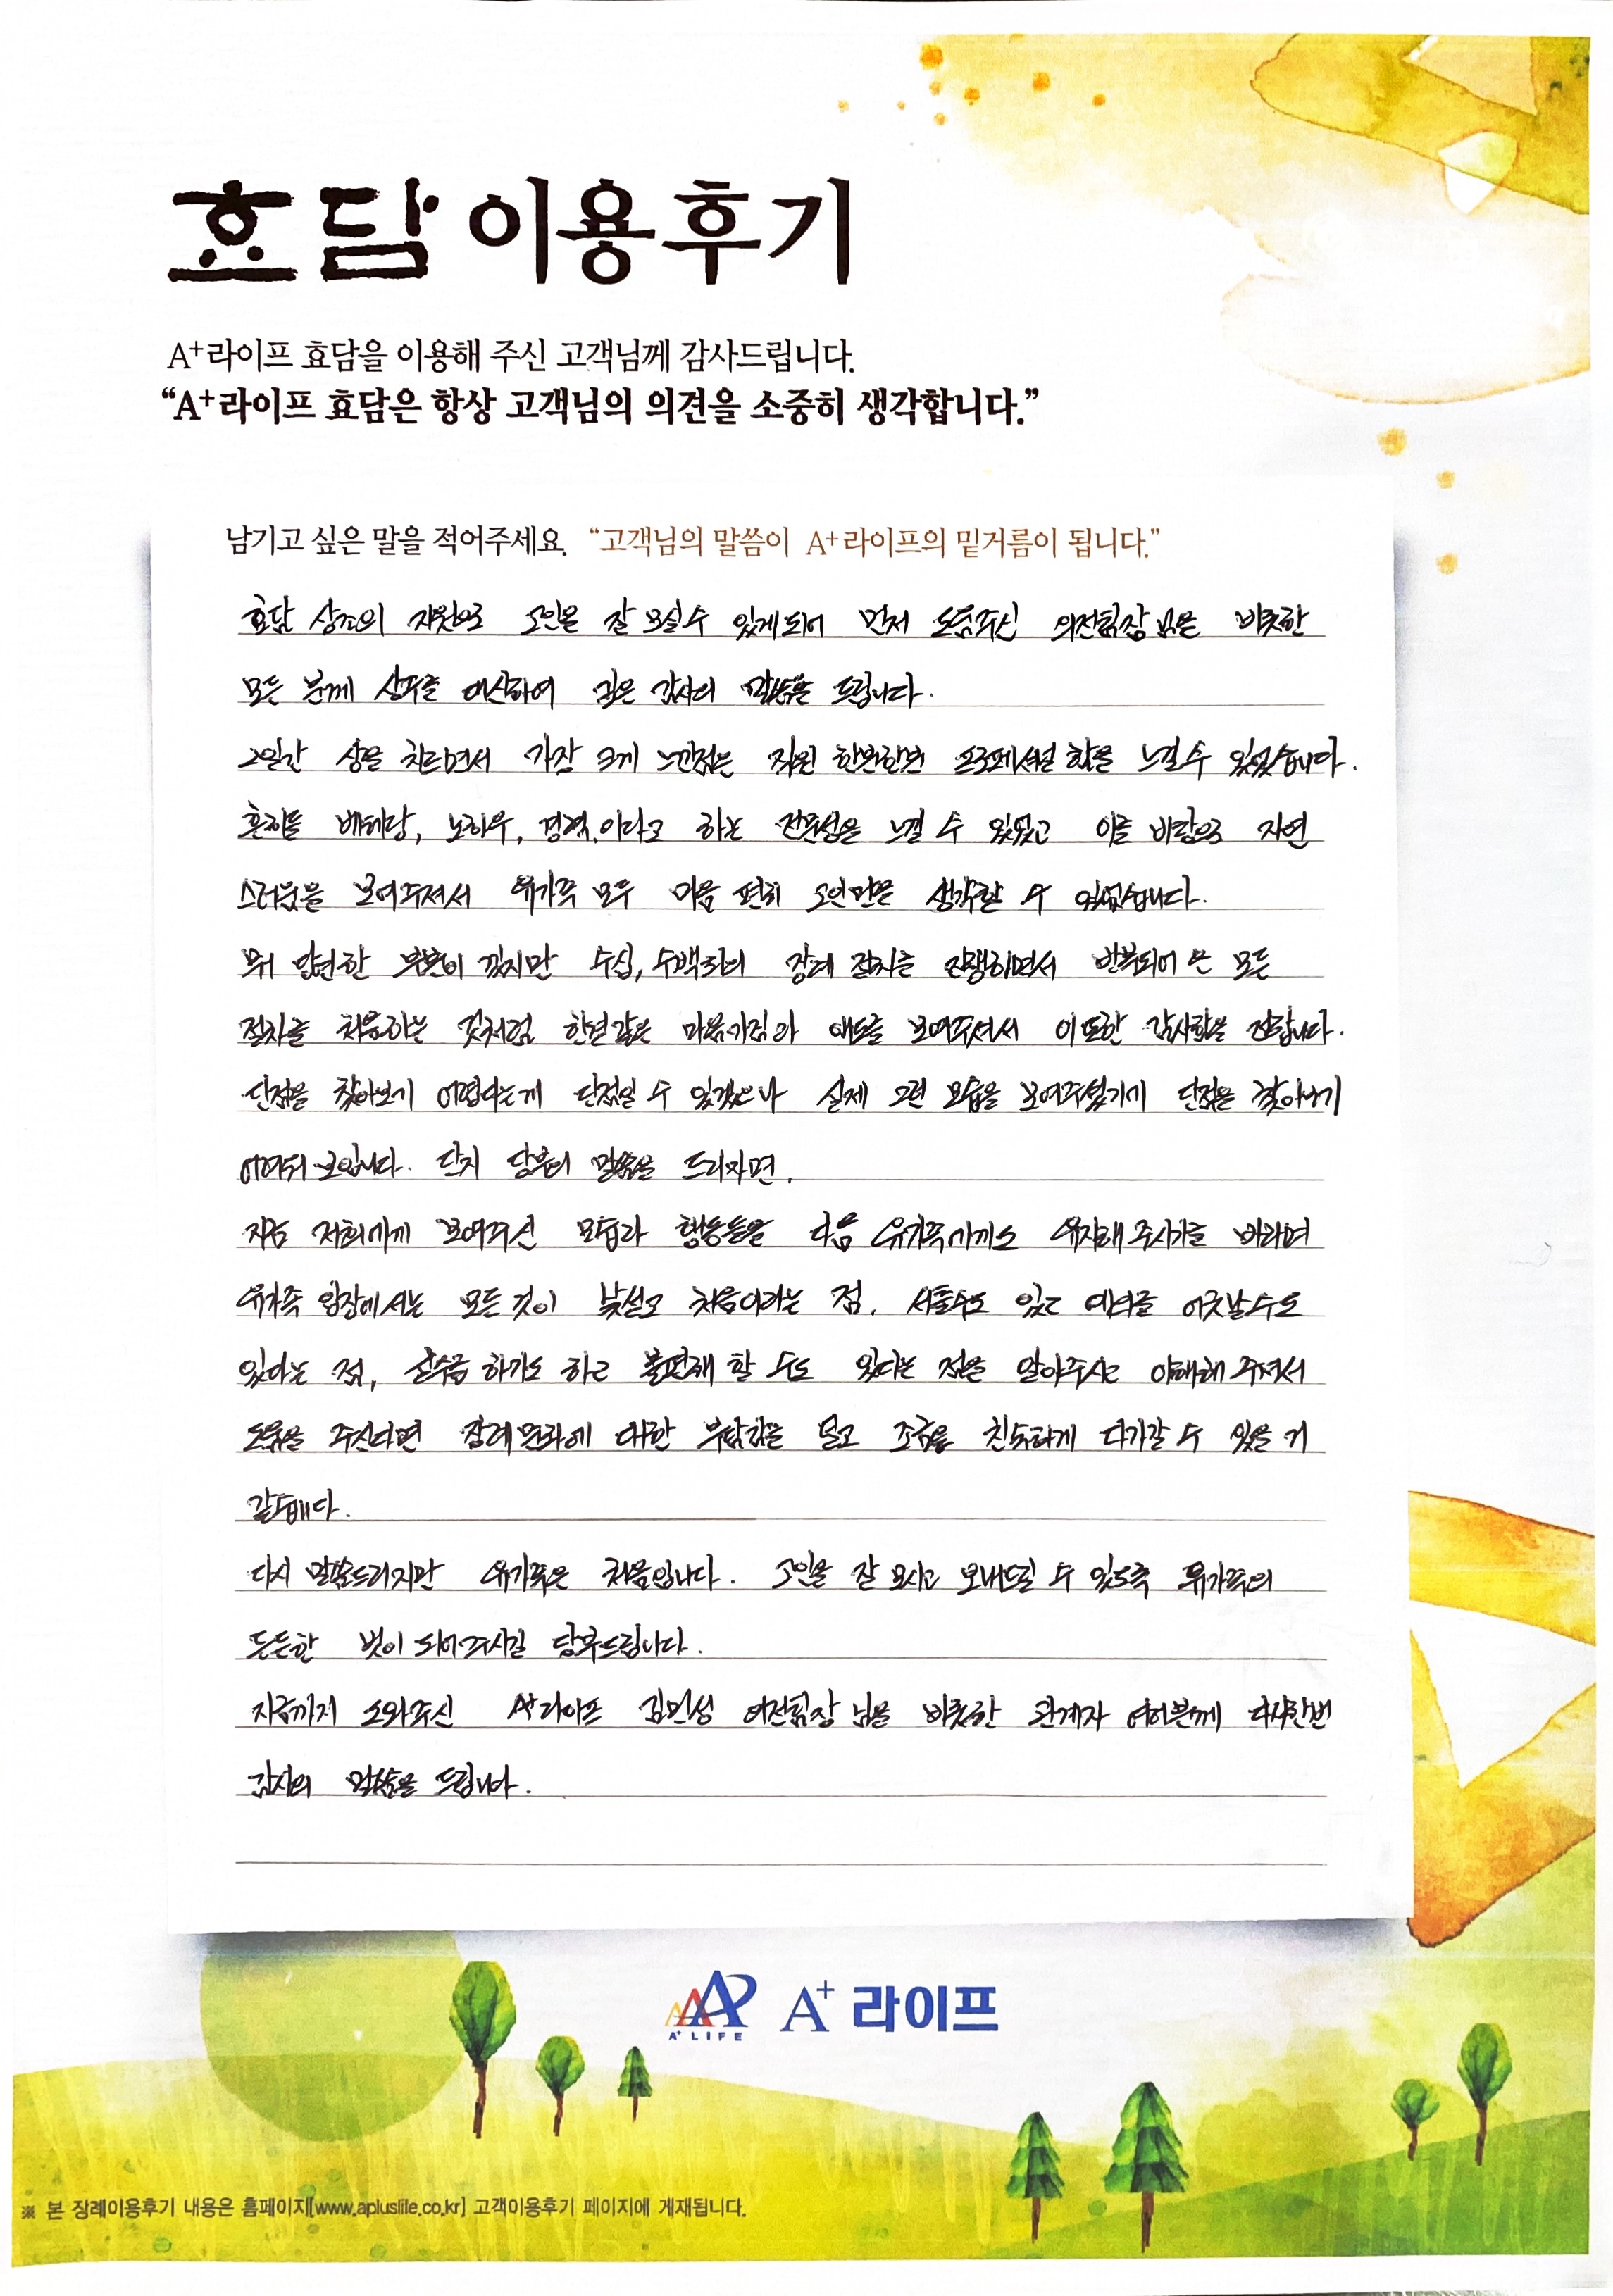 효담 이용후기
A+라이프 효담을 이용해 주신 고객님께 감사드립니다.
“A+라이프 효담은 항상 고객님의 의견을 소중히 생각합니다.”
남기고 싶은 말을 적어주세요. “고객님의 말씀이 A+라이프의 밑거름이 됩니다.”
효담 상조의 지원으로 고인을 잘 모실 수 있게되어 먼저 도움주신 의전팀장님을 비롯한
모든 분께 상주를 대신하여 깊은 감사의 말씀을 드립니다.
2일간 상을 치르면서 가장 크게 느낀점은 직원 한분한분 프로페셔널 함을 느낄 수 있었습니다.
흔히들 베테랑, 노하우, 경력, 이라고 하는 전문성을 느낄 수 있었고 이를 바탕으로 자연
스러움을 보여주셔서 유가족 모두 마음 편히 고인만을 생각할 수 있었습니다.
뭐 당연한 부분이겠지만 수십, 수백회의 장례 절차를 진행하면서 반복되어 온 모든
절차를 처음하는 것처럼 한결같은 마음가짐과 애도를 보여주셔서 이 또한 감사함을 전합니다.
단점을 찾아보기 어렵다는게 단점일 수 있겠으나 실제 그런 모습을 보여주셨기에 단점을 찾아보기
어려워 보입니다. 단지 당부의 말씀을 드리자면,
지금 저희에게 보여주신 모습과 행동들을 다음 유가족에게도 유지해 주시기를 바라며
유가족 입장에서는 모든 것이 낯설고 처음이라는 점, 서툴수도 있고 예의를 어긋날수도
있다는 점, 실수를 하기도 하고 불편해 할 수도 있다는 점을 알아주시고 이해해 주셔서
도움을 주신다면 장례문화에 대한 부담감을 덜고 조금은 친숙하게 다가갈 수 있을 거
같습니다.
다시 말씀드리지만 유가족은 처음입니다. 고인을 잘 모시고 보내드릴 수 있도록 유가족의
든든한 벗이 되어주시길 당부드립니다.
지금까지 도와주신 A+라이프 김민성 의전팀장님을 비롯한 관계자 여러분께 다시한번
감사의 말씀을 드립니다.
A+ LIFE A+ 라이프
※ 본 장례이용후기 내용은 홈페이지[www.apluslife.co.kr] 고객이용후기 페이지에 게재됩니다.